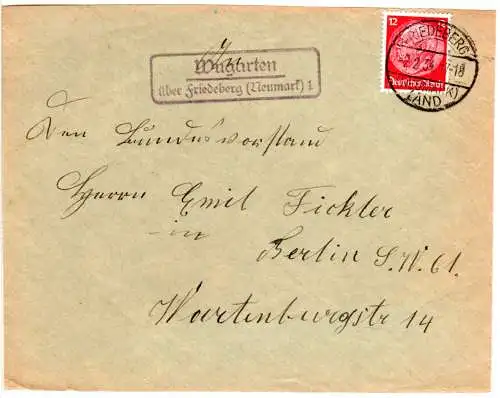 Wugarten
über Friedeberg (Neumark) 1
12
Deutsches Reich
FRIEDEBERG
LAND
Den Bundesvorstand
Herrn Emil Fickler
in
Berlin S.W. 61.
Wartenburgstr 14